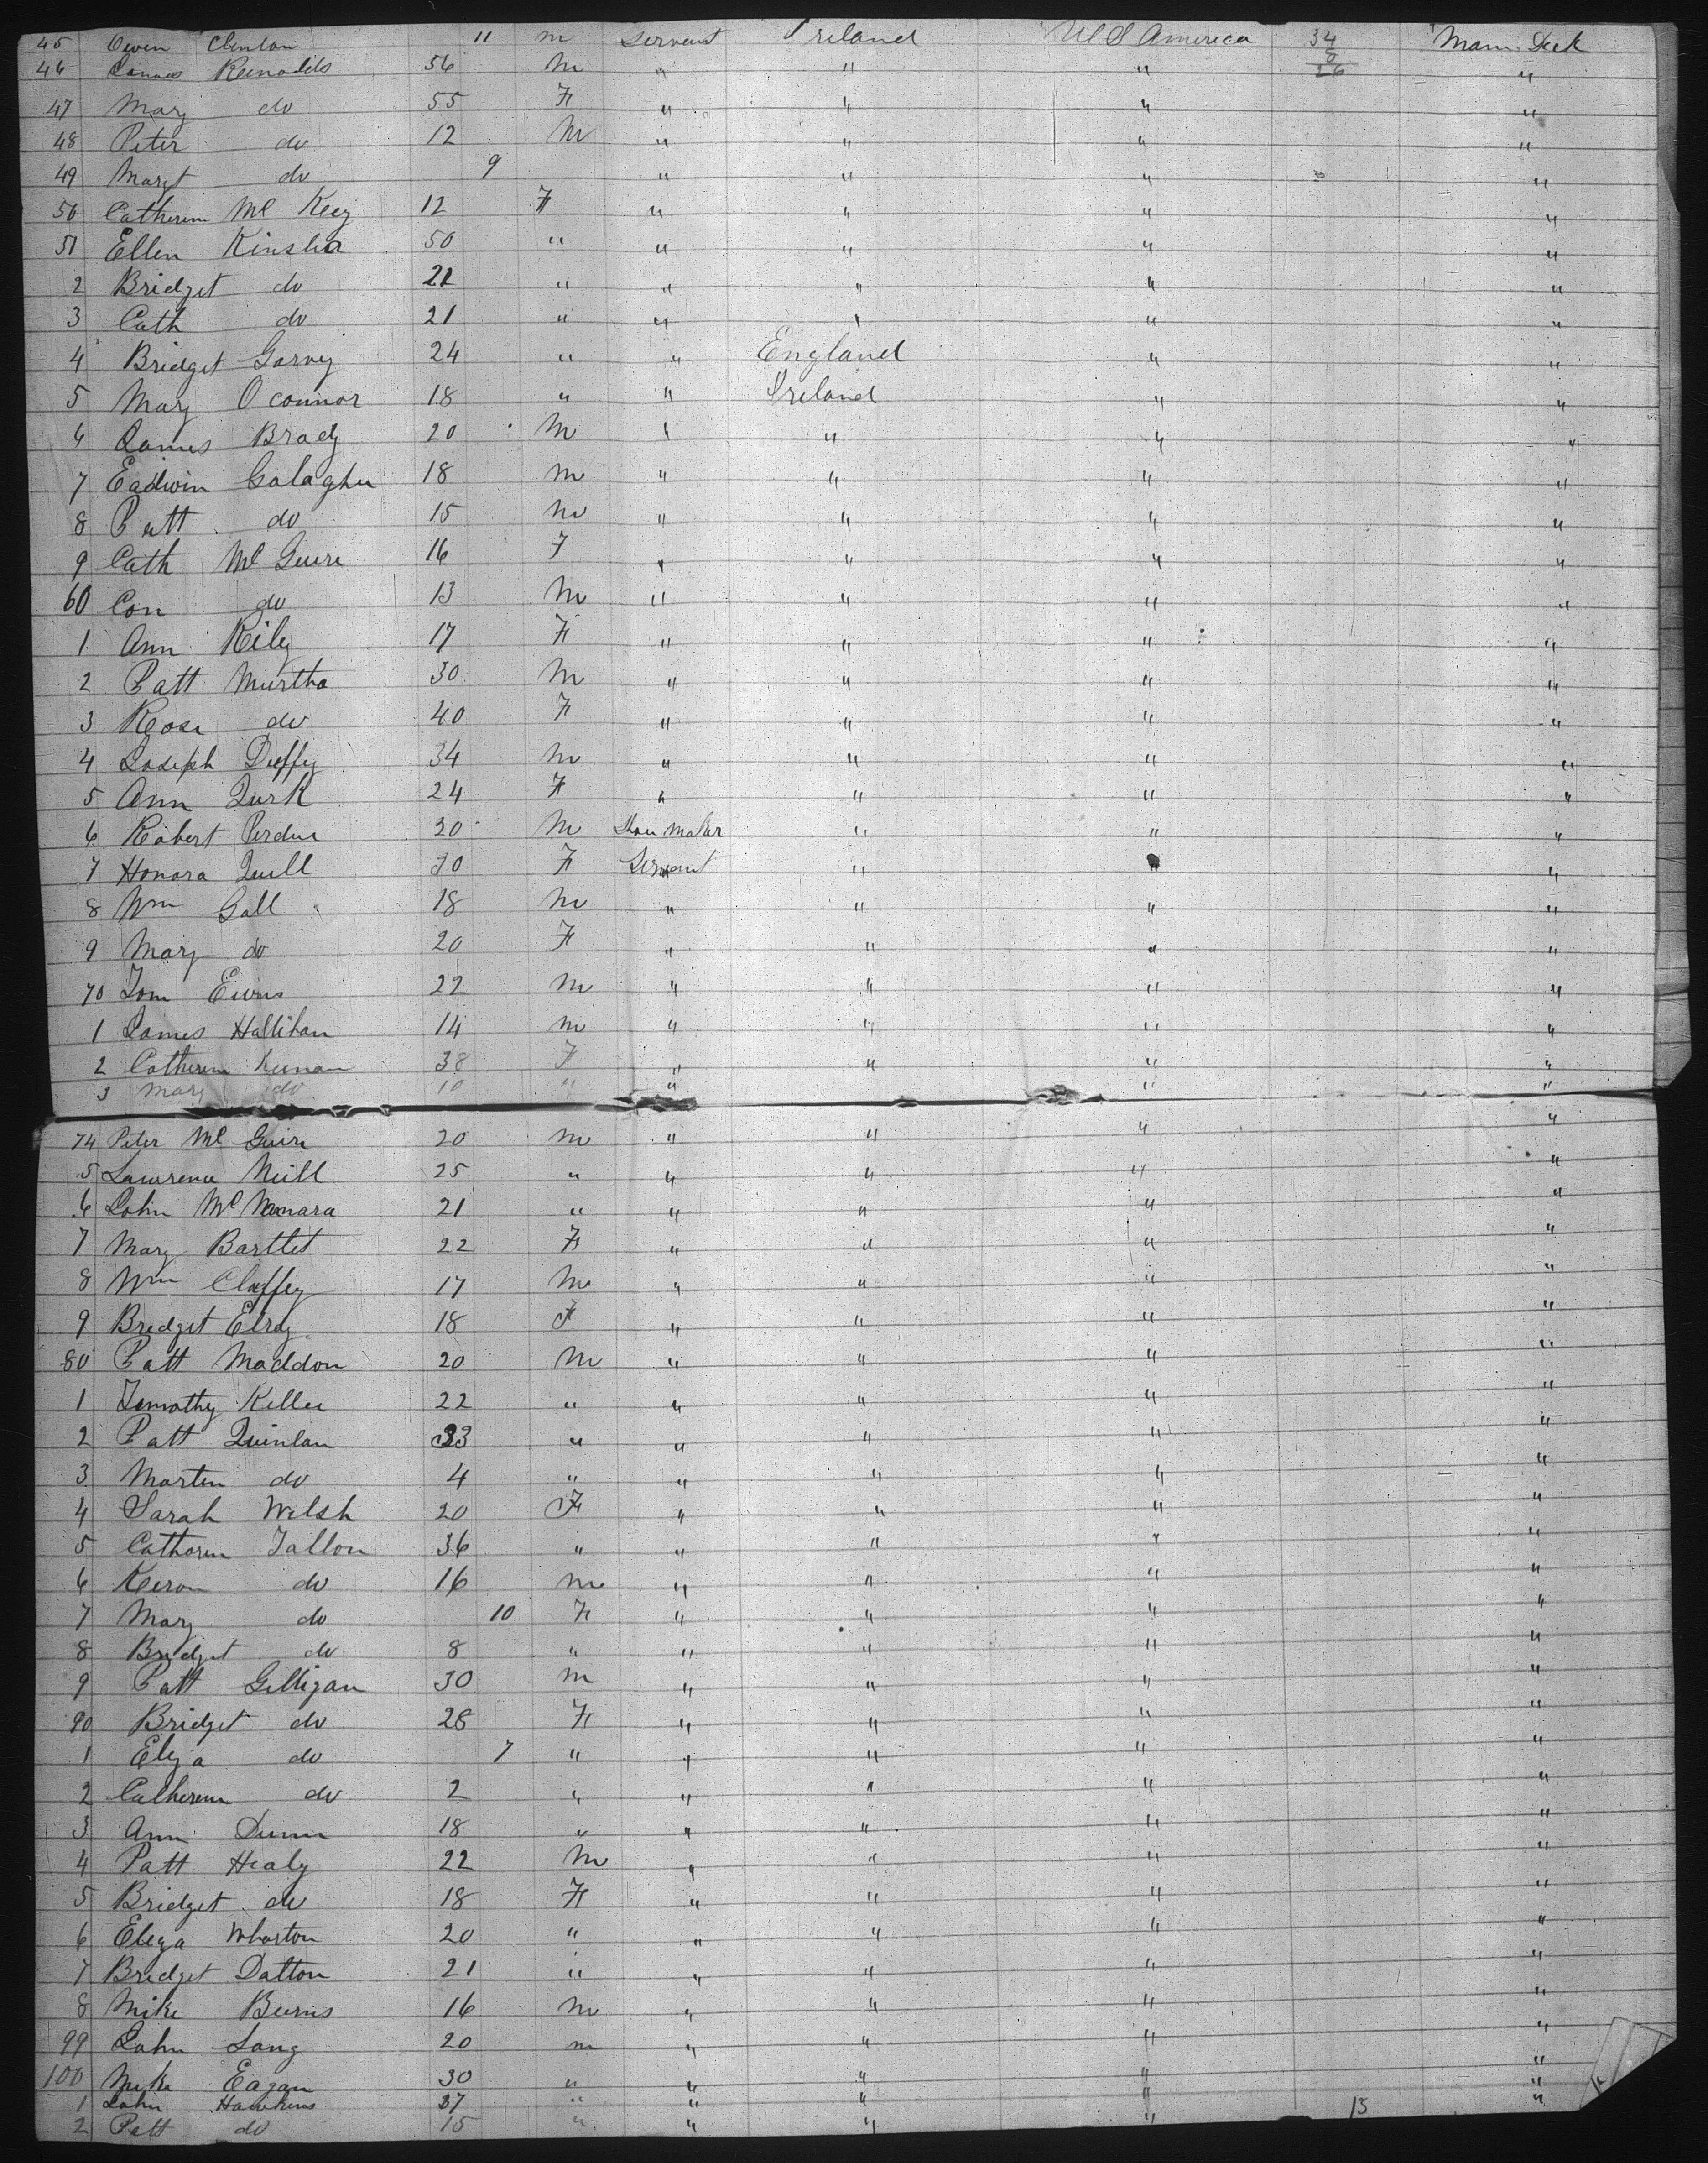 45 Owen Clinton 11 m Servant Ireland U S America 34 Main Deck
46 James Reinolds 56 M " " " 8 "
47 Mary do 55 F " " " 26 "
48 Peter do 12 M " " " "
49 Margt do 9 " " " "
50 Catheren Mc Keey 12 F " " " "
51 Ellen Kinsler 50 " " " " "
2 Bridget do 21 " " " " "
3 Cath do 21 " " " " "
4 Bridget Garvey 24 " " England " "
5 Mary O connor 18 " " Ireland " "
6 James Brady 20 M " " " "
7 Eadwin Galagher 18 m " " " "
8 Patt do 15 m " " " "
9 Cath Mc Guire 16 F " " " "
60 Con do 13 M " " " "
1 Ann Rily 17 F " " " "
2 Patt Murtha 30 M " " " "
3 Rose do 40 F " " " "
4 Joseph Duffy 34 m " " " "
5 Ann Qurk 24 F " " " "
6 Robert Perdue 20 M Shoe maker " " "
7 Honora Quill 30 F Servant " " "
8 Wm Gall 18 m " " " "
9 Mary do 20 F " " " "
70 Tom Eivers 22 m " " " "
1 James Hallihan 14 m " " " "
2 Catheren Keenan 38 F " " " "
3 Mary do 10 " " " " "
74 Peter Mc Guire 20 m " " " "
5 Lawrence Neill 25 " " " " "
6 John Mc Namara 21 " " " " "
7 Mary Bartlet 22 F " " " "
8 Wm Claffey 17 M " " " "
9 Bredget Elroy 18 F " " " "
80 Patt Maddon 20 M " " " "
1 Temothy Keller 22 " " " " "
2 Patt Quinlan 33 " " " " "
3 Marten do 4 " " " " "
4 Sarah Welsh 20 F " " " "
5 Catharen Tallon 36 " " " " "
6 Keiron do 16 m " " " "
7 Mary do 10 F " " " "
8 Bridget do 8 " " " " "
9 Patt Gilligan 30 m " " " "
90 Bridget do 28 F " " " "
1 Eliza do 7 " " " " "
2 Catheren do 2 " " " " "
3 Ann Dunn 18 " " " " "
4 Patt Healy 22 M " " " "
5 Bridget do 18 F " " " "
6 Eliza Wharton 20 " " " " "
7 Bredget Dalton 21 " " " " "
8 Mike Burns 16 m " " " "
99 John Lang 20 m " " " "
100 Mike Eagan 30 " " " " "
1 John Hawkins 37 " " " " "
2 Patt do 15 " " " " 13